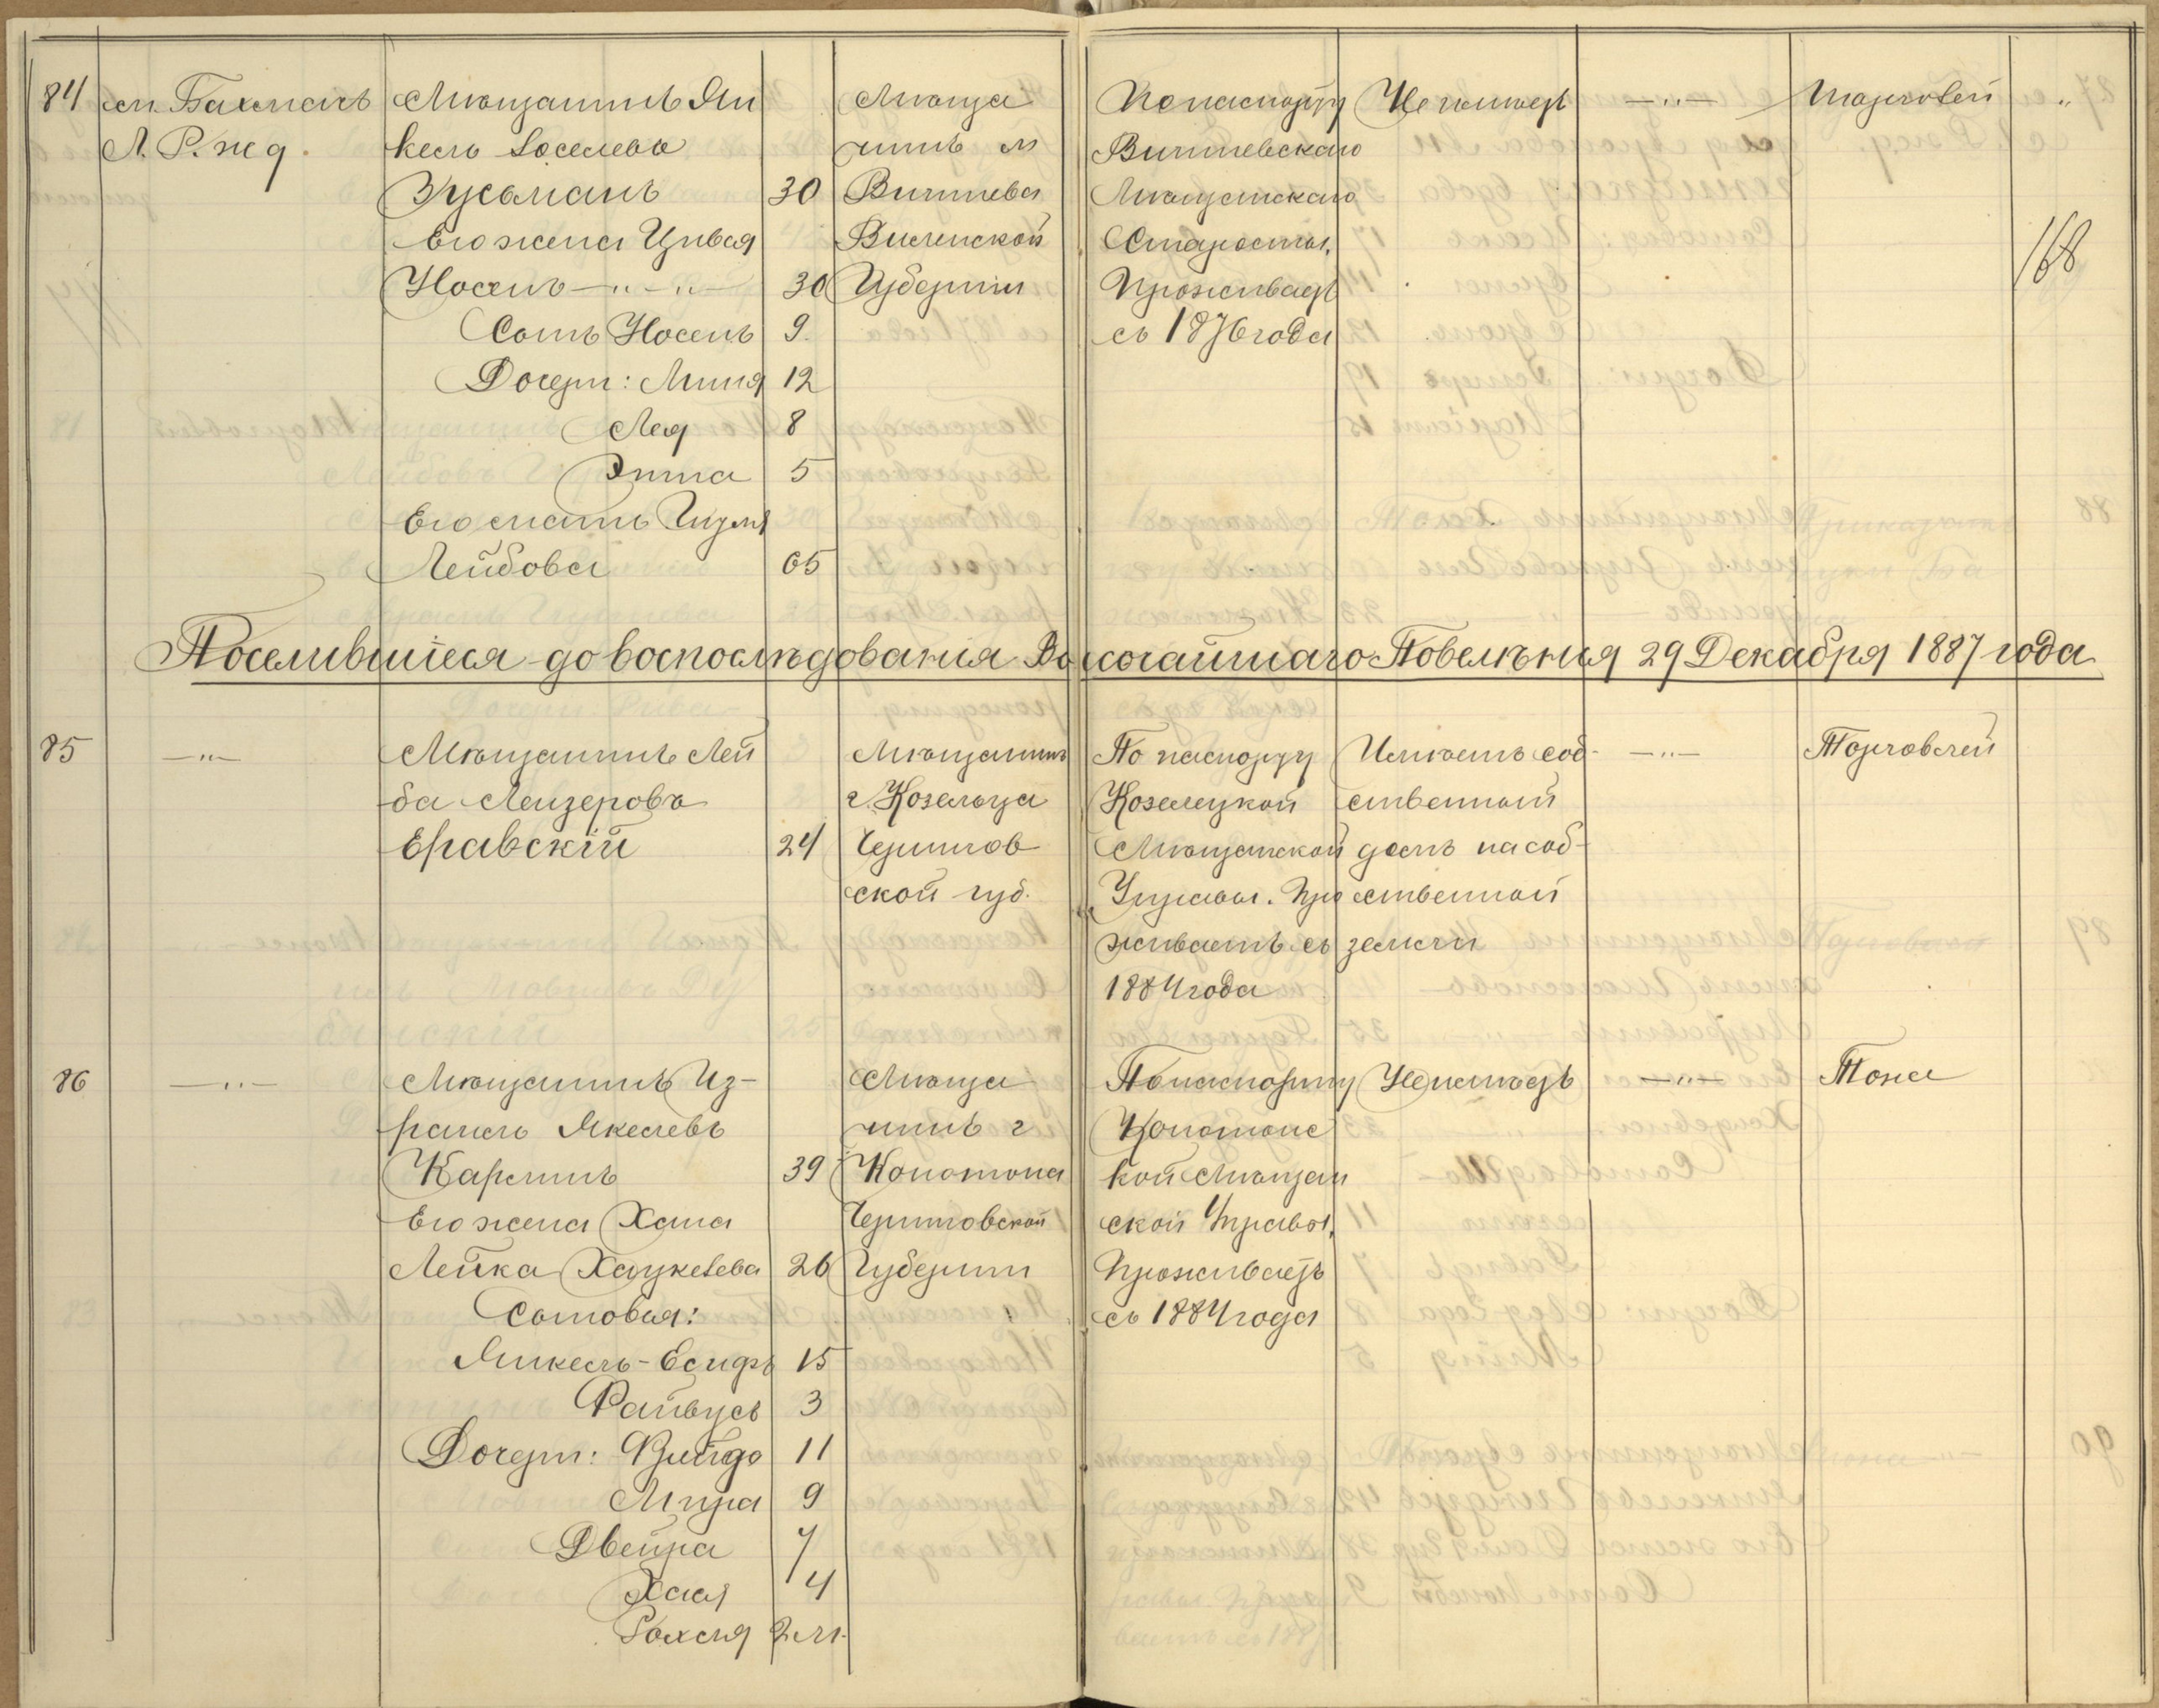 84
ст. Бахмачъ
Л. Р. ж д.
Мѣщанинъ Ян
кель Іоселевъ
Зусьманъ 30
Его жена Цивья
Носенъ —„—„— 30
Сынъ Носенъ 9
Дочери: Миня 12
Лея 8
Этта 5
Его мать
Лейбова 65
Мѣща
нинъ м
Вишнева
Виленской
Губерніи
По паспорту
Вишневскаго
Мѣщанскаго
Старосты.
Проживаетъ
съ 1876 года
Не имѣетъ
—„—
Торговлей
„
168
Поселившіеся до воспослѣдованія Высочайшаго Повелѣнія 29 Декабря 1887 года
85
—„—
Мѣщанинъ Лей
ба Лейзеровъ
Еравскій 24
Мѣщанинъ
г. Козельца
Чернигов
ской губ.
По паспорту
Козелецкой
Мѣщанской
Управы. Про
живаетъ съ
1884 года
Имѣетъ соб-
ственный
домъ на соб-
ственной
земли
—„—
Торговлей
86
—„—
Мѣщанинъ Из-
раиль Янкелевъ
Карлинъ 39
Его жена Хана
Лейка 26
Сыновья:
Янкель-Есифъ 15
Файвусъ 3
Дочери: Фрейда 11
Мира 9
Двейра 7
Хая 4
Рохля 2 м.
Мѣща
нинъ г
Конотопа
Черниговской
Губерніи
По паспорту
Конотопс
кой Мѣщан
ской Управы.
Проживаетъ
съ 1884 года
Не имѣетъ
—„—
Тоже